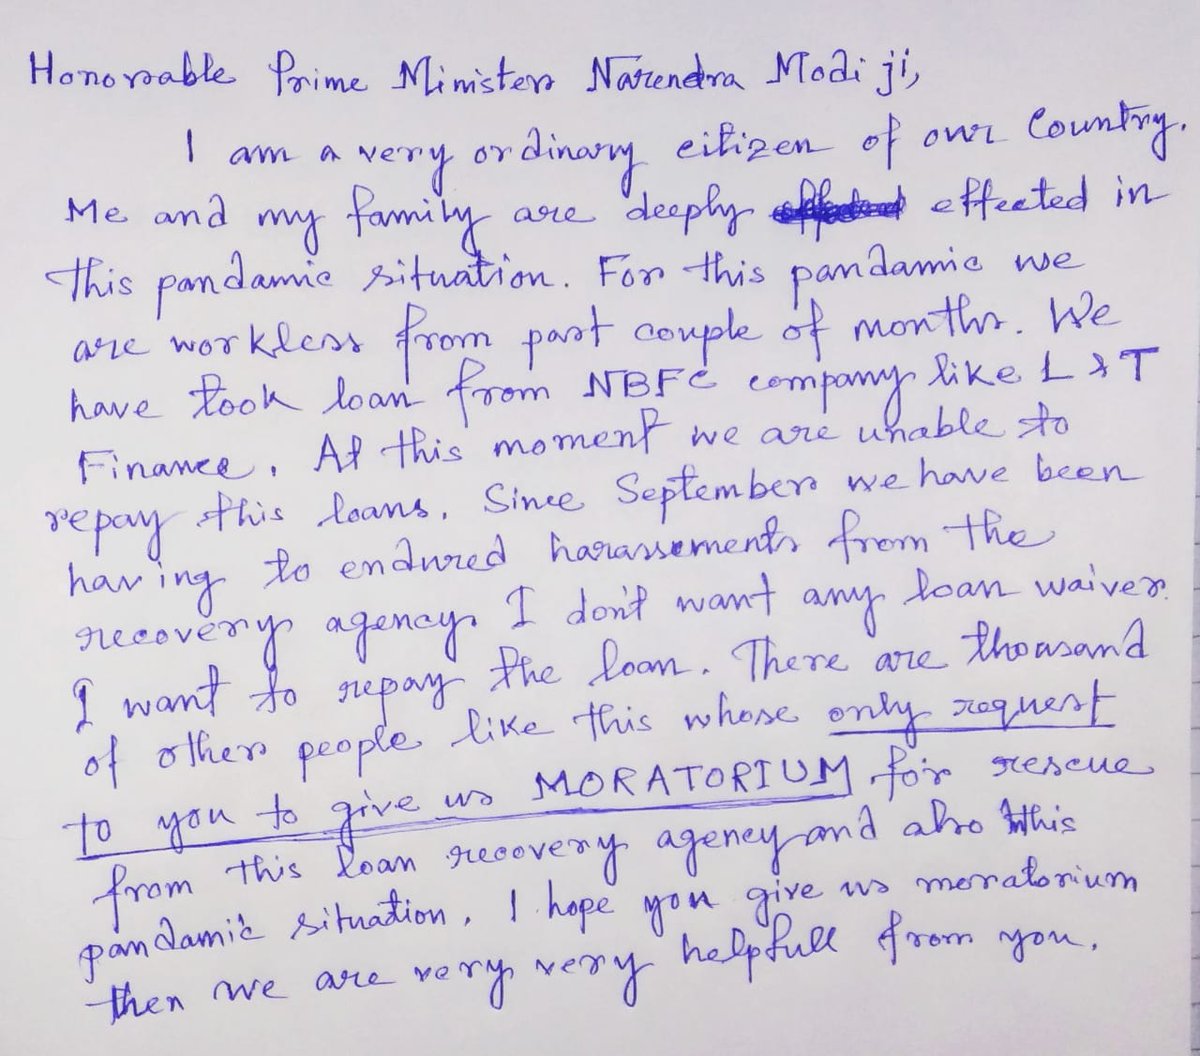 Honorable Prime Minister Narendra Modi ji,
I am a very ordinary citizen of our Country.
Me and my family are deeply effected in
this pandamic situation. For this pandamic we
are workless from past couple of months. We
have took loan from NBFC company like L & T
Finance. At this moment we are unable to
repay this loans. Since September we have been
having to endured harassements from the
recovery agency I don't want any loan waiver.
I want to repay the loan. There are thousand
of other people like this whose only request
to you to give us MORATORIUM for rescue
from this loan recovery agency and also this
pandamic situation, I hope you give us moratorium
then we are very very helpfull from you.